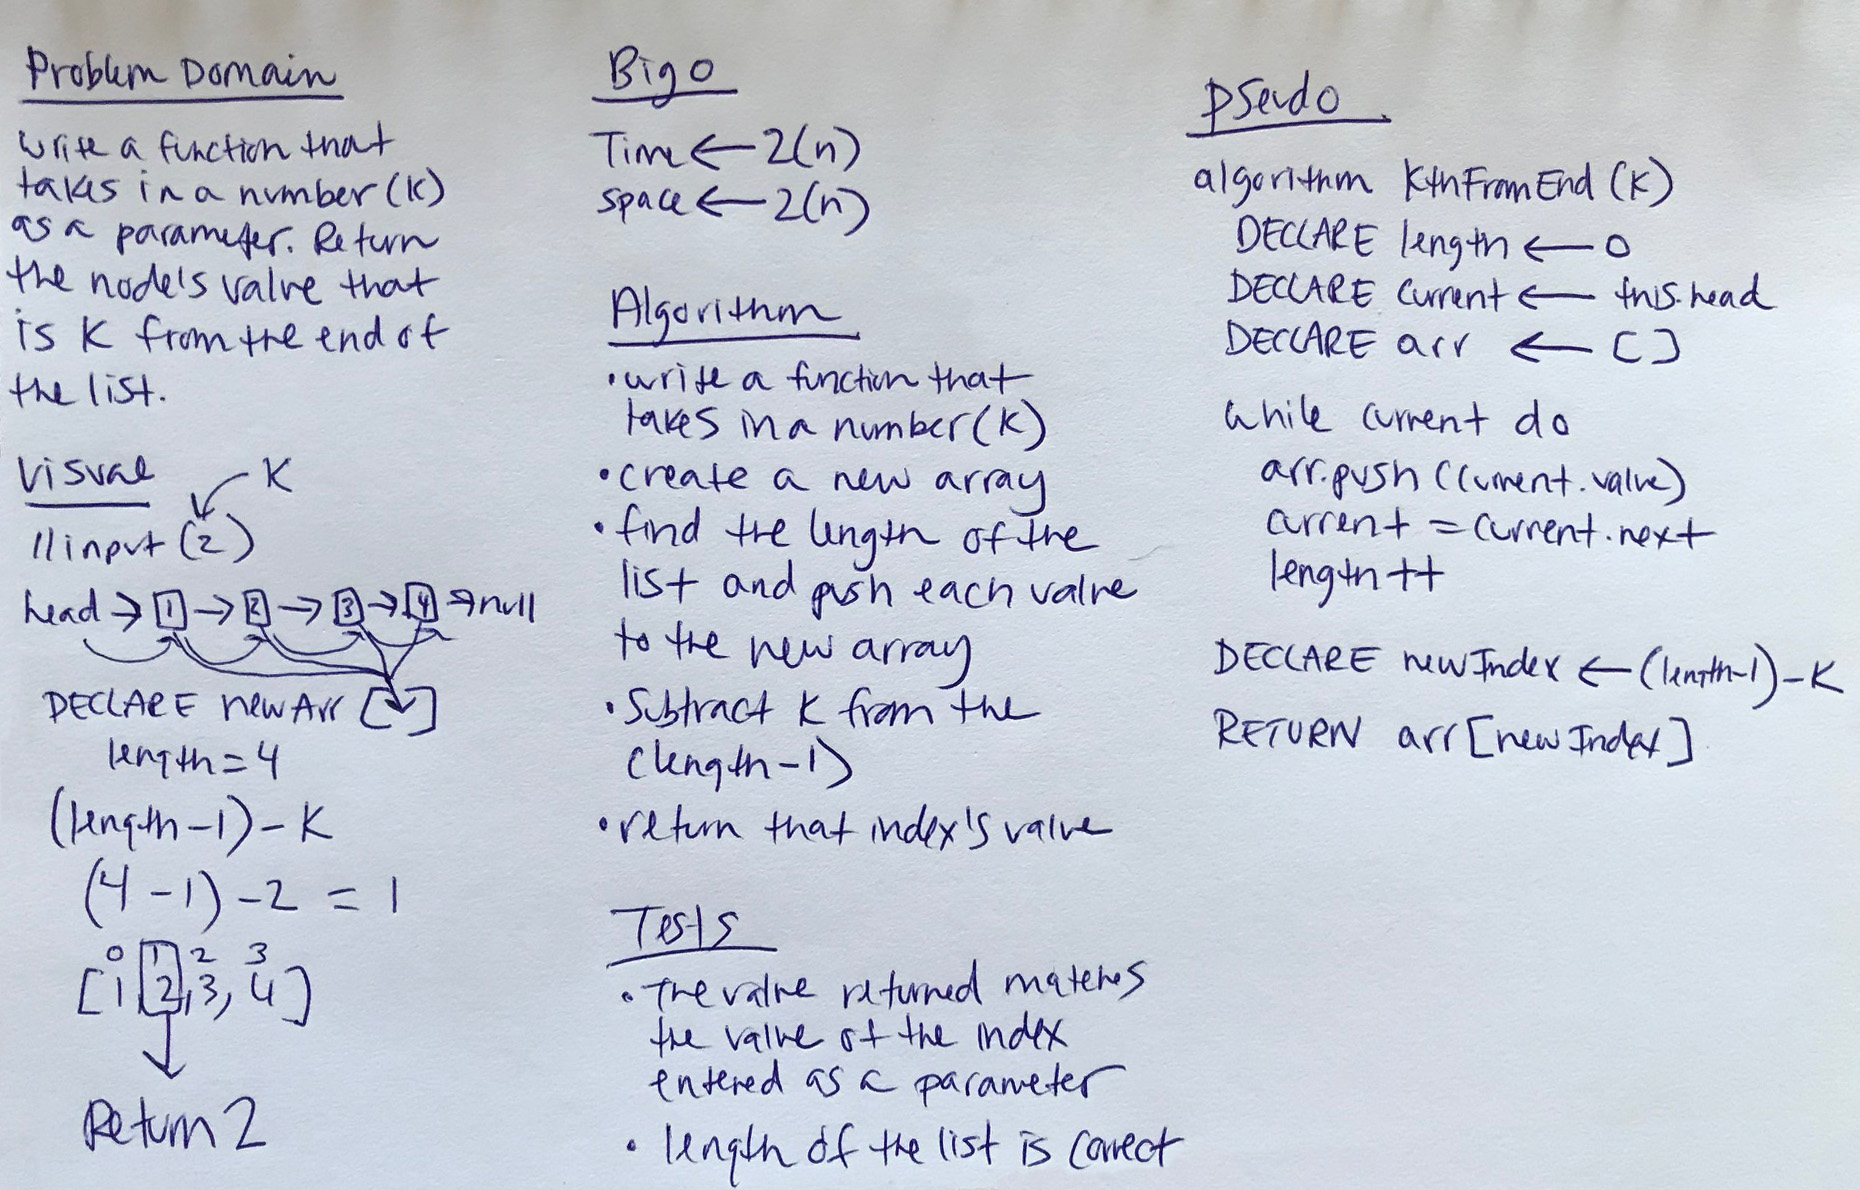 Problem Domain
write a function that
takes in a number (K)
as a parameter. Return
the node's value that
is K from the end of
the list.
Visual
K
//input (2)
head → 1 → 2 → 3 → 4 → null
DECLARE newArr [ ]
length = 4
(length-1) - K
(4-1) - 2 = 1
0 1 2 3
[1 2, 3, 4]
Return 2
Big O
Time ← 2(n)
space ← 2(n)
Algorithm
• write a function that
takes in a number (K)
• create a new array
• find the length of the
list and push each value
to the new array
• Subtract K from the
(length-1)
• return that index's value
Tests
• The value returned matches
the value of the index
entered as a parameter
• length of the list is correct
Pseudo
algorithm KthFromEnd (K)
DECLARE length ← 0
DECLARE current ← this.head
DECLARE arr ← [ ]
while current do
arr.push (current.value)
current = current.next
length ++
DECLARE newIndex ← (length-1) - K
RETURN arr [newIndex]